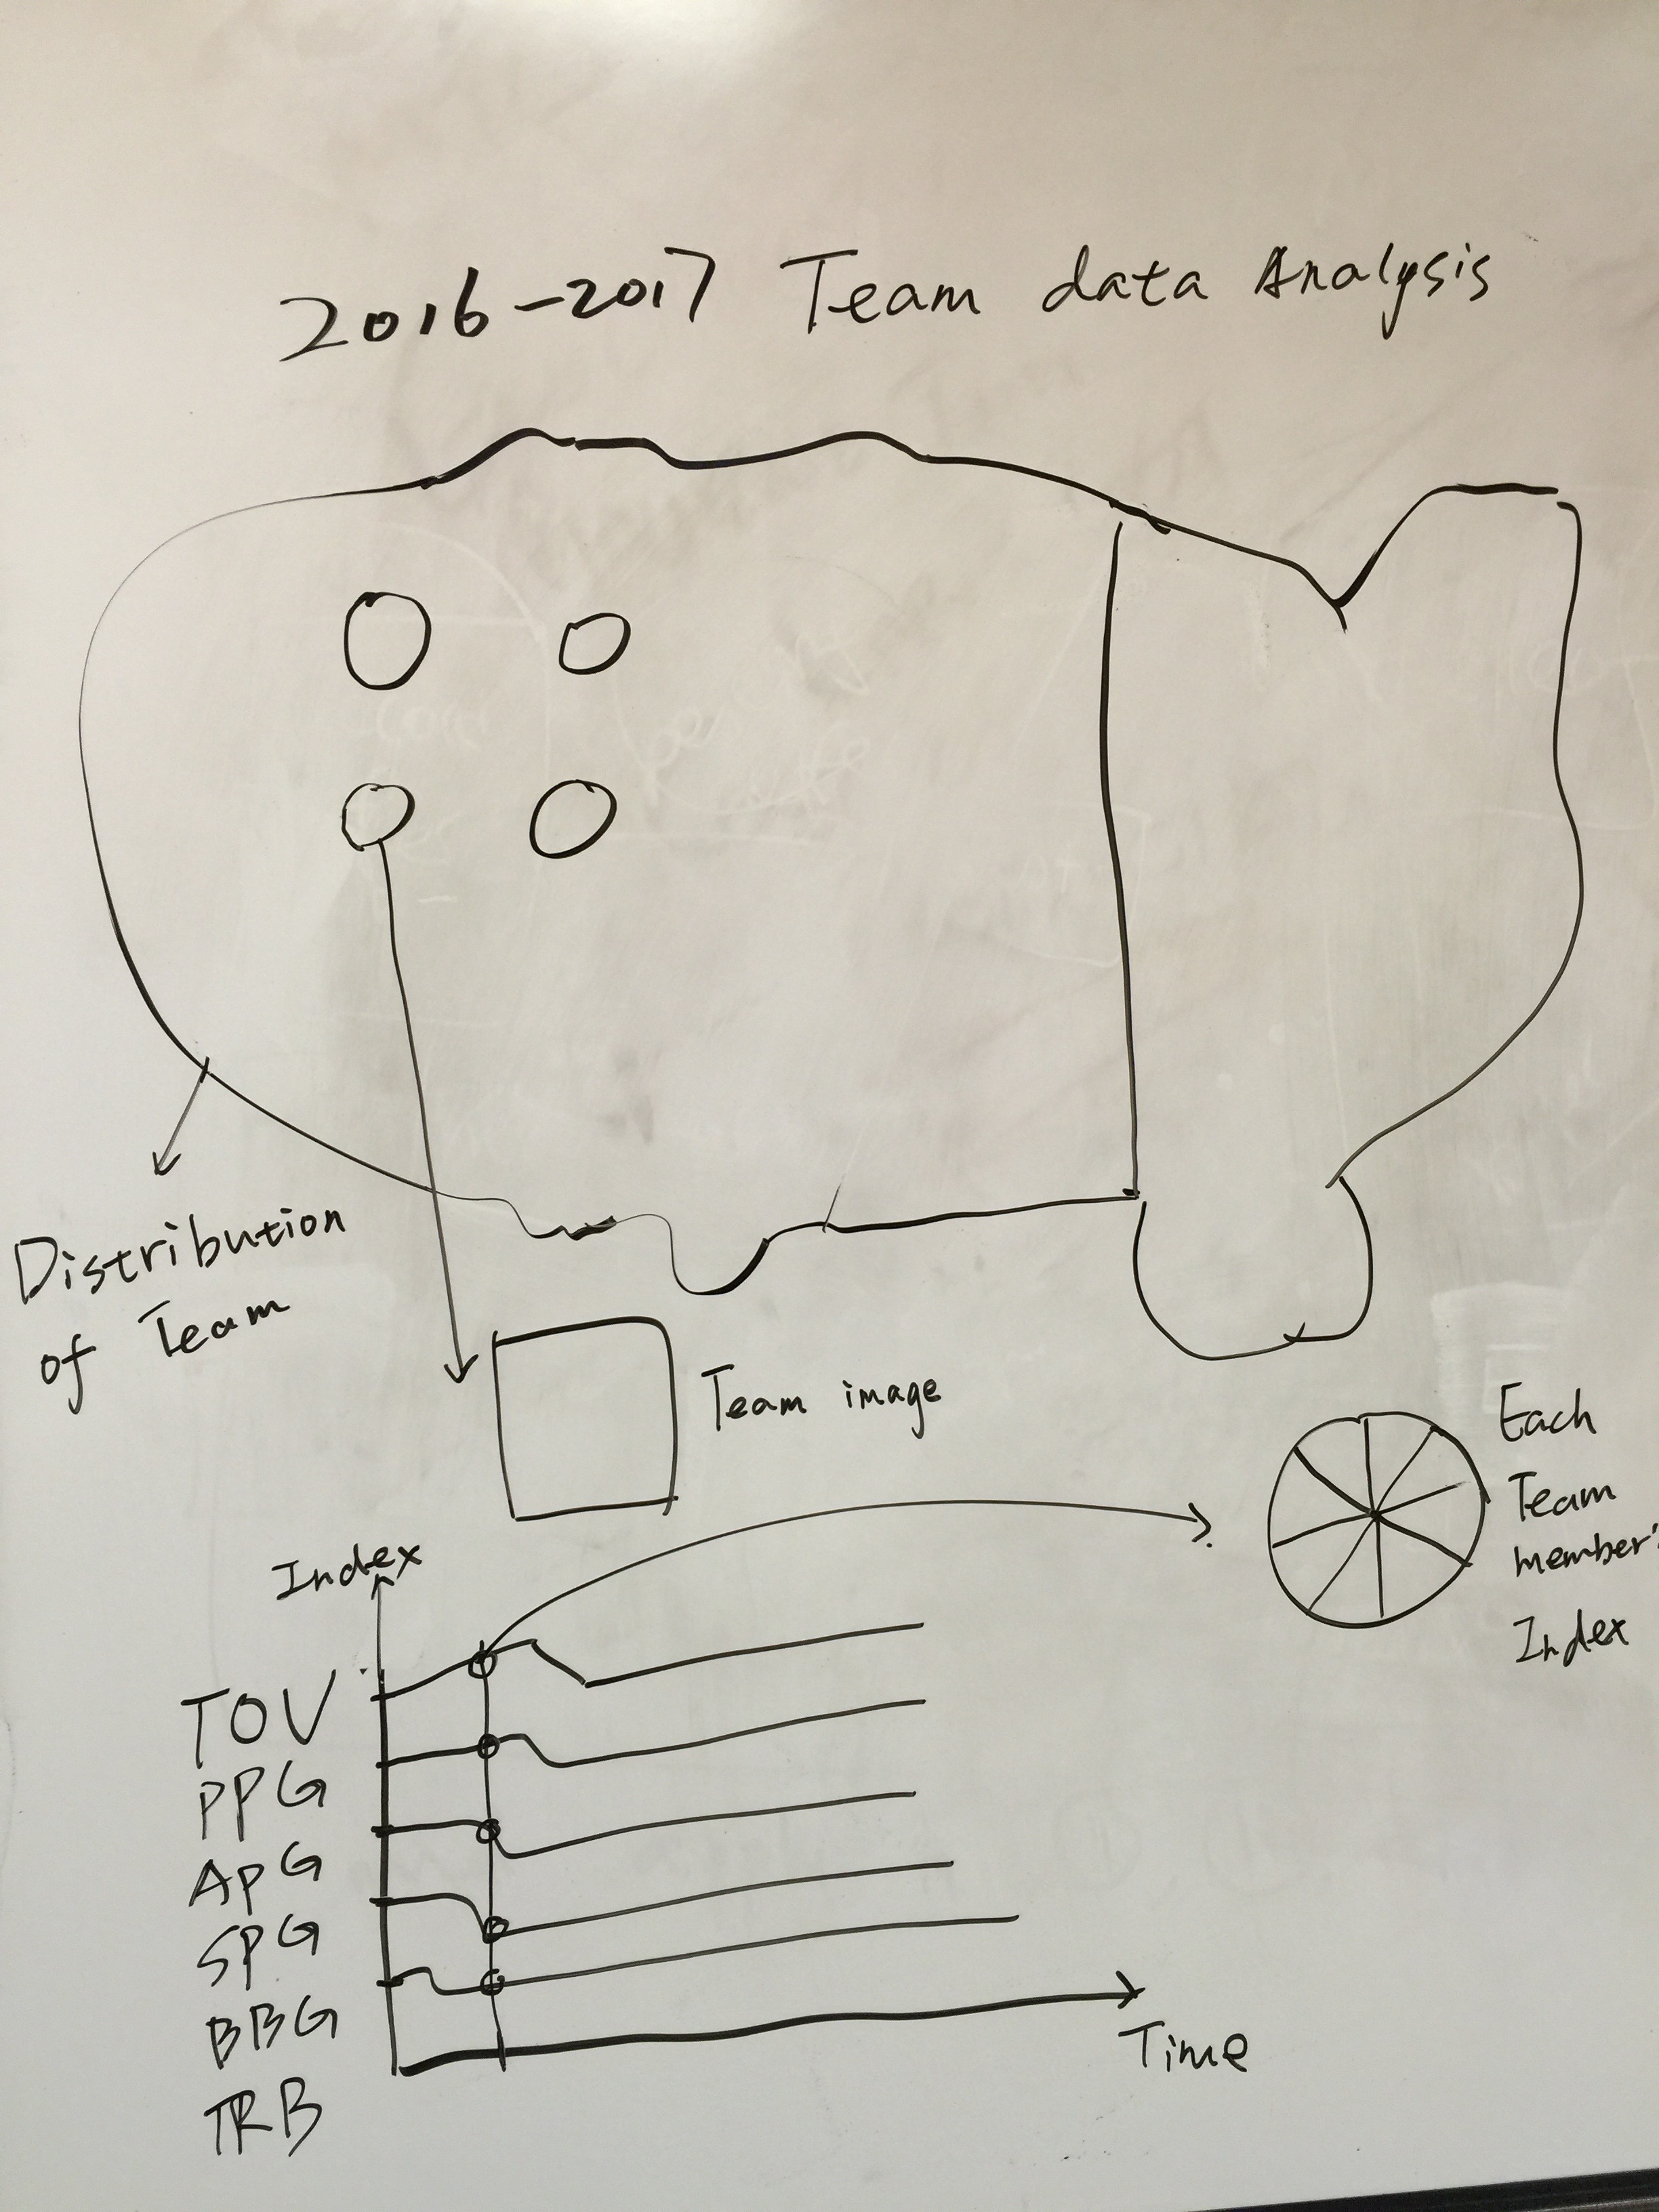 2016-2017 Team data Analysis
Distribution
of Team
Team image
Each
Team
member's
Index
Index
TOV
PPG
APG
SPG
BBG
TRB
Time